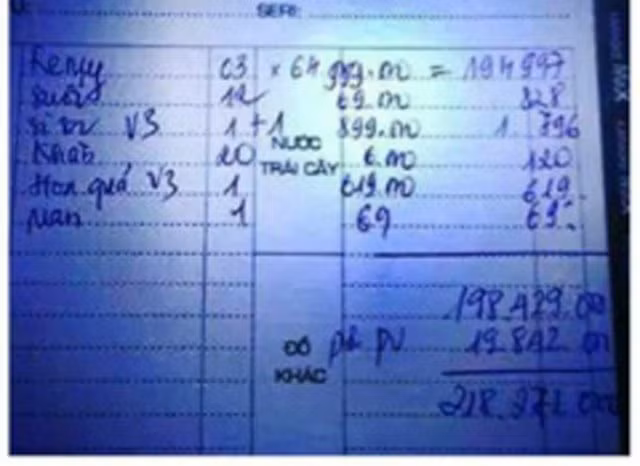 SERI:
Remy 03 × 64 999.000 = 194 997
suối 12 69.000 828
V3 1 + 1 899.000 1.796
NƯỚC TRÁI CÂY
Khăn 20 6.000 120
Hoa quả V3 1 619.000 619
1 69 69.
198.429.000
ĐỒ KHÁC
19.842.000
218.271.000